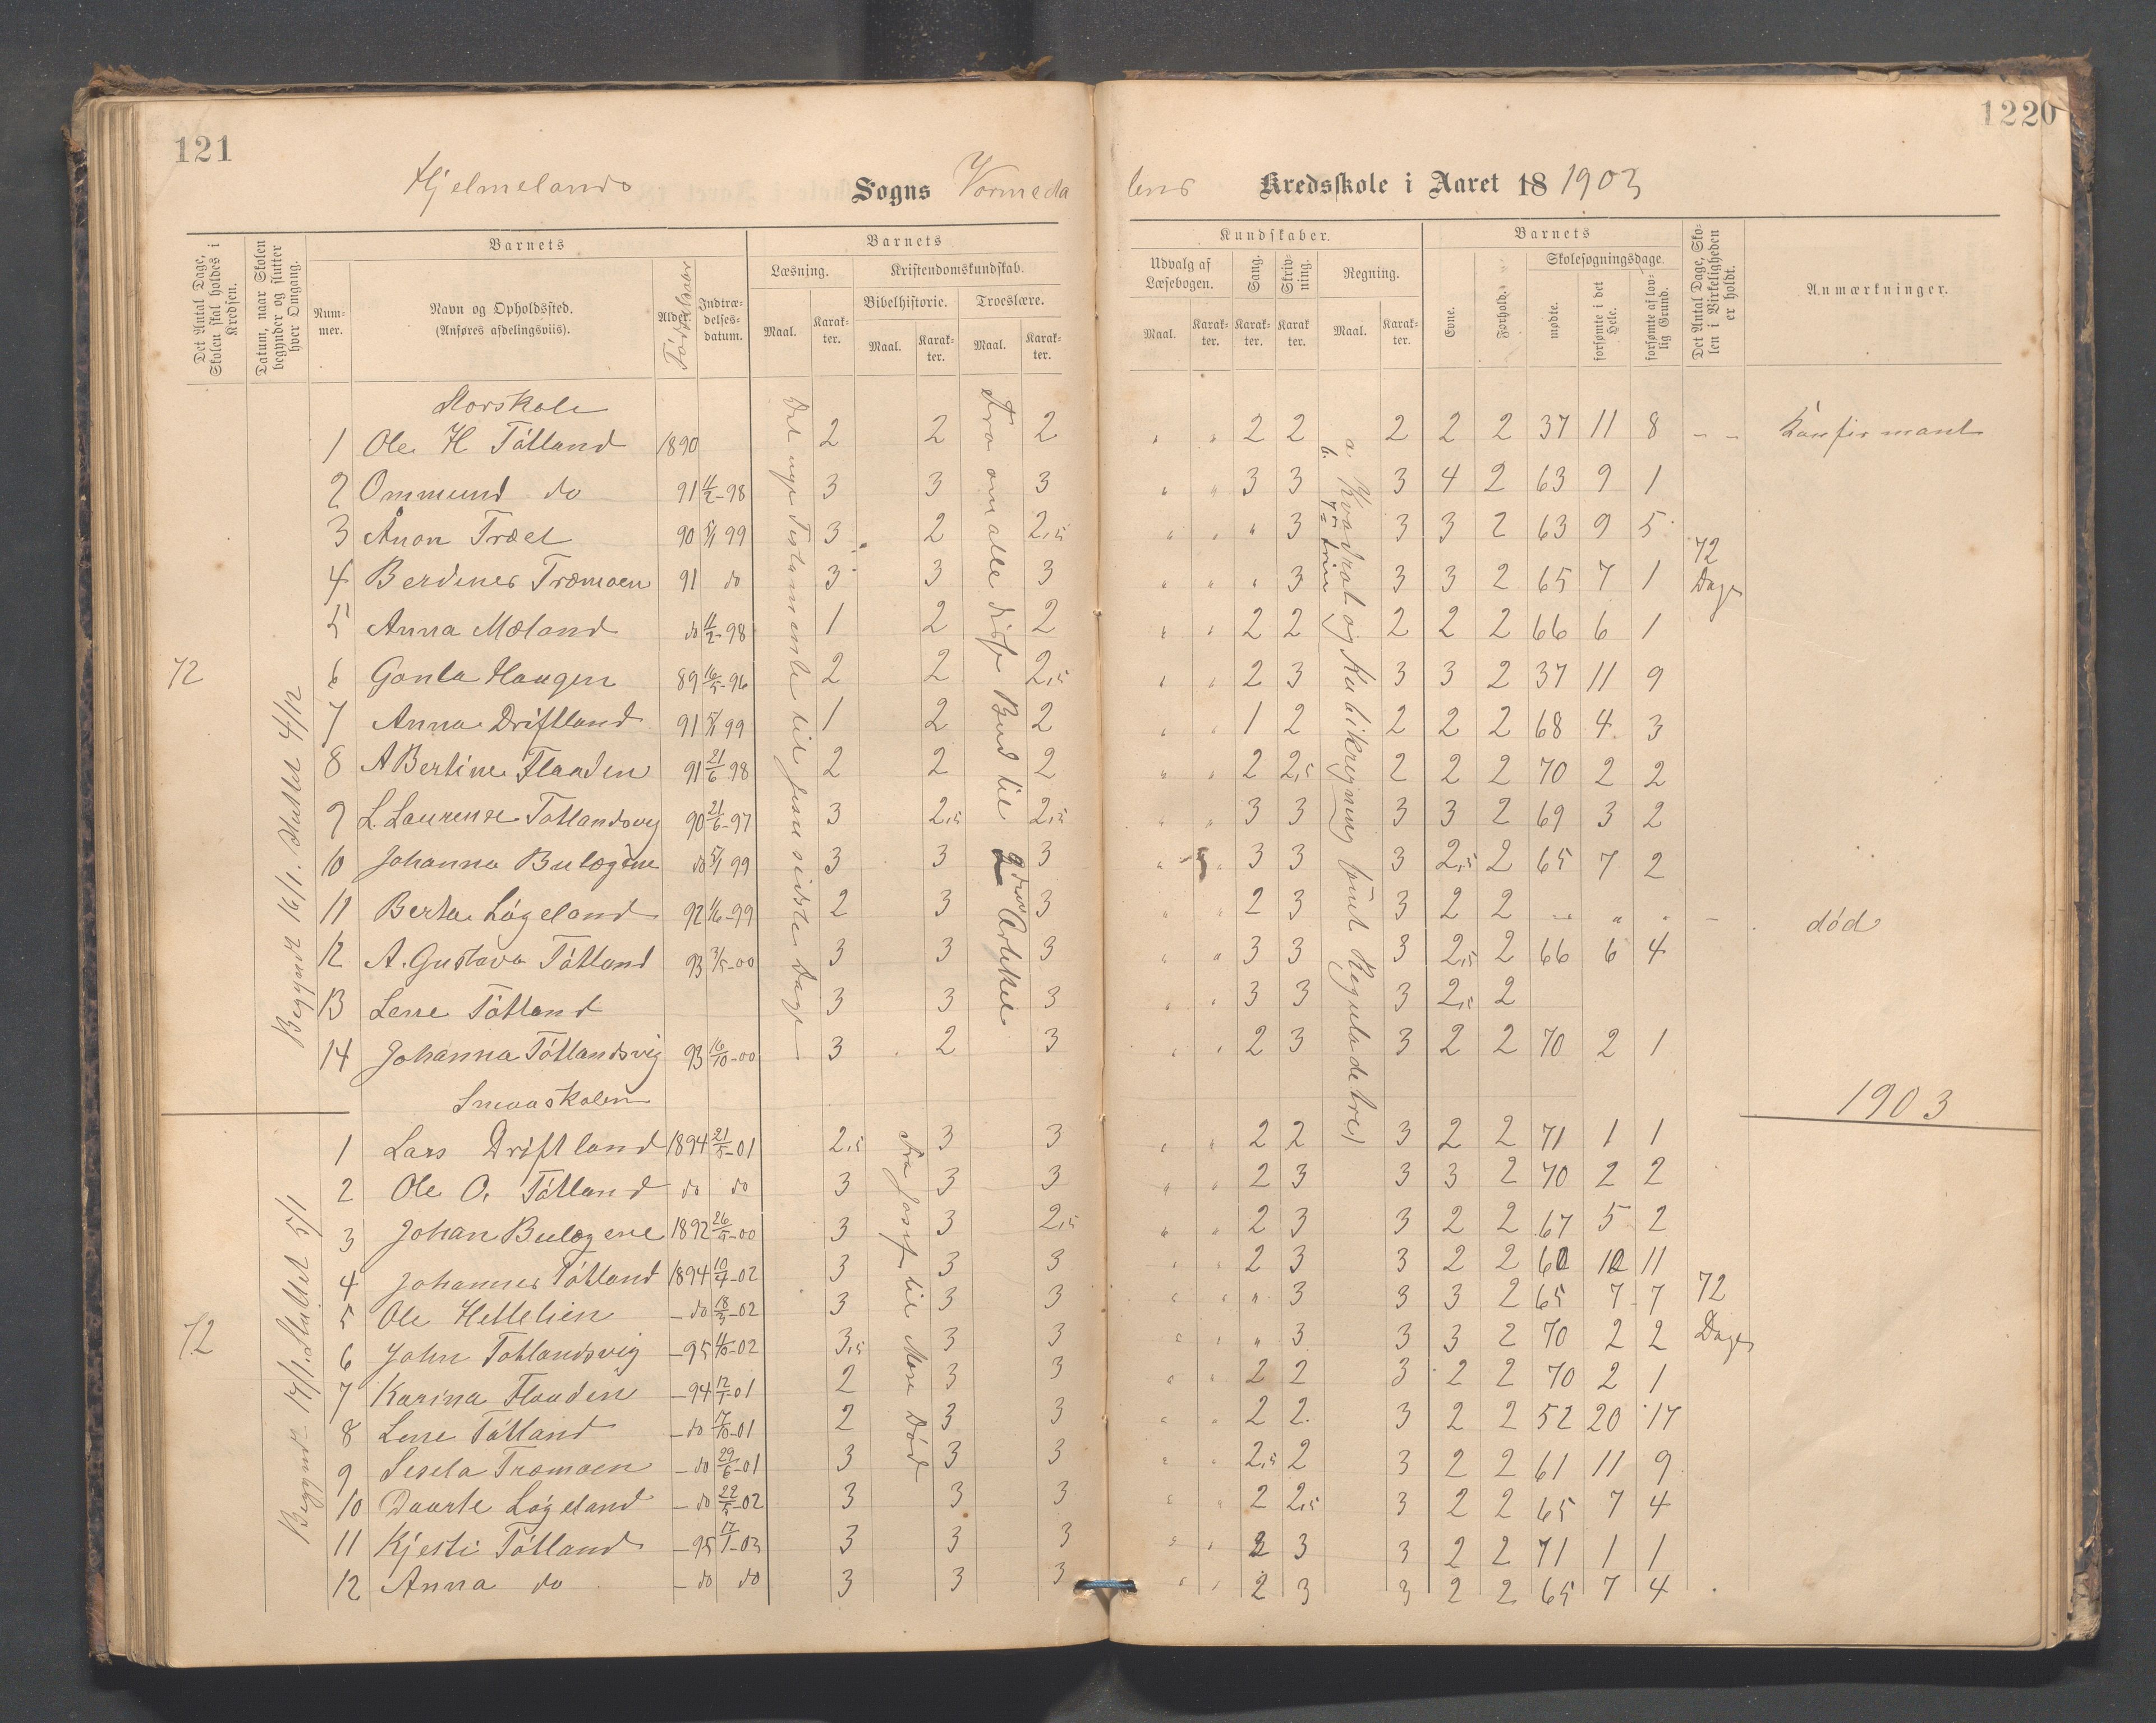 121
1220
Hjelmelands Sogns Vormeda
lens Kredsskole i Aaret 18 1903
Det Antal Dage, Skolen skal holdes i Kredsen.
Datum, naar Skolen begynder og slutter hver Omgang.
Barnets
Nummer.
Navn og Opholdssted.
(Anføres afdelingsviis).
Alder.
Fødselsaar
Indtrædelsesdatum.
Barnets
Læsning.
Maal.
Karakter.
Kristendomskundskab.
Bibelhistorie.
Maal.
Karakter.
Troeslære.
Maal.
Karakter.
Kundskaber.
Udvalg af Læsebogen.
Maal.
Karakter.
Sang.
Karakter.
Skrivning.
Karakter.
Regning.
Maal.
Karakter.
Barnets
Evne.
Forhold.
Skolesøgningsdage.
mødte.
forsømte i det Hele.
forsømte af lovlig Grund.
Det Antal Dage, Skolen i Virkeligheden er holdt.
Anmærkninger.
Storskole
1 Ole H Tøtland 1890 2 2 2 " " 2 2 2 2 2 37 11 8 - - Konfirmant
2 Ommund do 91 11/2-98 3 3 3 " " 3 3 3 4 2 63 9 1
3 Ånon Træet 90 5/1 99 3 2 2,5 " " " 3 3 3 2 63 9 5
4 Berdines Træmoen 91 do 3 3 3 " " " 3 3 3 2 65 7 1
5 Anna Mæland do 11/2-98 1 2 2 " " 2 2 2 2 2 66 6 1
6 Gonla Haugen 89 16/5-96 2 2 2,5 " " 2 3 3 3 2 37 11 9
7 Anna Driftland 91 5/1 99 1 2 2 " " 1 2 2 2 2 68 4 3
8 A Bertine Flaaden 91 21/6 98 2 2 2 " " 2 2,5 2 2 2 70 2 2
9 L. Laurense Tøtlandsvig 90 21/6-97 3 2,5 2,5 " " 3 3 3 3 2 69 3 2
10 Johanna Bulægene do 5/1 99 3 3 3 " " 3 3 3 2,5 2 65 7 2
11 Berta Løgeland 92 1/6-99 2 3 3 " " 2 3 3 2 2 - " " - død
12 A. Gustava Tøtland 93 3/5-00 3 3 3 " " 3 3 3 2,5 2 66 6 4
13 Lene Tøtland 3 3 3 " " 3 3 3 2,5 2
14 Johanna Tøtlandsvig 93 16/10-00 3 2 3 " " 2 3 3 2 2 70 2 1
72
Begyndt 16/1. Sluttet 4/12
Det nye Testamente til Jesu sidste Dage
Fra om alle disse Bud til 2 den Artikel
a. Kvadrat og Kubikregning samt Regula de tre
72 Dage
Smaaskolen
1903
1 Lars Driftland 1894 21/5-01 2,5 3 3 " " 2 2 3 2 2 71 1 1
2 Ole O. Tøtland do do 3 3 3 " " 2 3 3 3 2 70 2 2
3 Johan Bulægene 1892 26/5-00 3 3 2,5 " " 2 3 3 2 2 67 5 2
4 Johannes Tøtland 1894 10/4-02 3 3 3 2 3 3 2 2 60 12 11
5 Ole Hettelien - do 18/3-02 3 3 3 " " " 3 3 3 2 65 7 7
6 John Tøtlandsvig - 95 -02 3,5 3 3 " " " 3 3 3 2 70 2 2
7 Karina Flaaden - 94 12/1-01 2 3 3 " " 2 2 3 2 2 70 2 1
8 Lene Tøtland - do 17/10-01 2 3 3 " " 2 2 3 2 2 52 20 17
9 Sesela Træmoen - do 29/6-01 3 3 3 " " 2,5 2 3 2 2 61 11 9
10 Daarte Løgeland - do 22/5-02 3 3 3 " " 2 2,5 3 2 2 65 7 4
11 Kjesti Tøtland - 95 17/1-03 3 3 3 " " 2 3 3 2 2 71 1 1
12 Anna do - do do 3 3 3 " " 2 3 3 2 2 65 7 4
72
Begyndt 17/1. Sluttet 5/1
Fra Josef til Mose Død
72 Dage